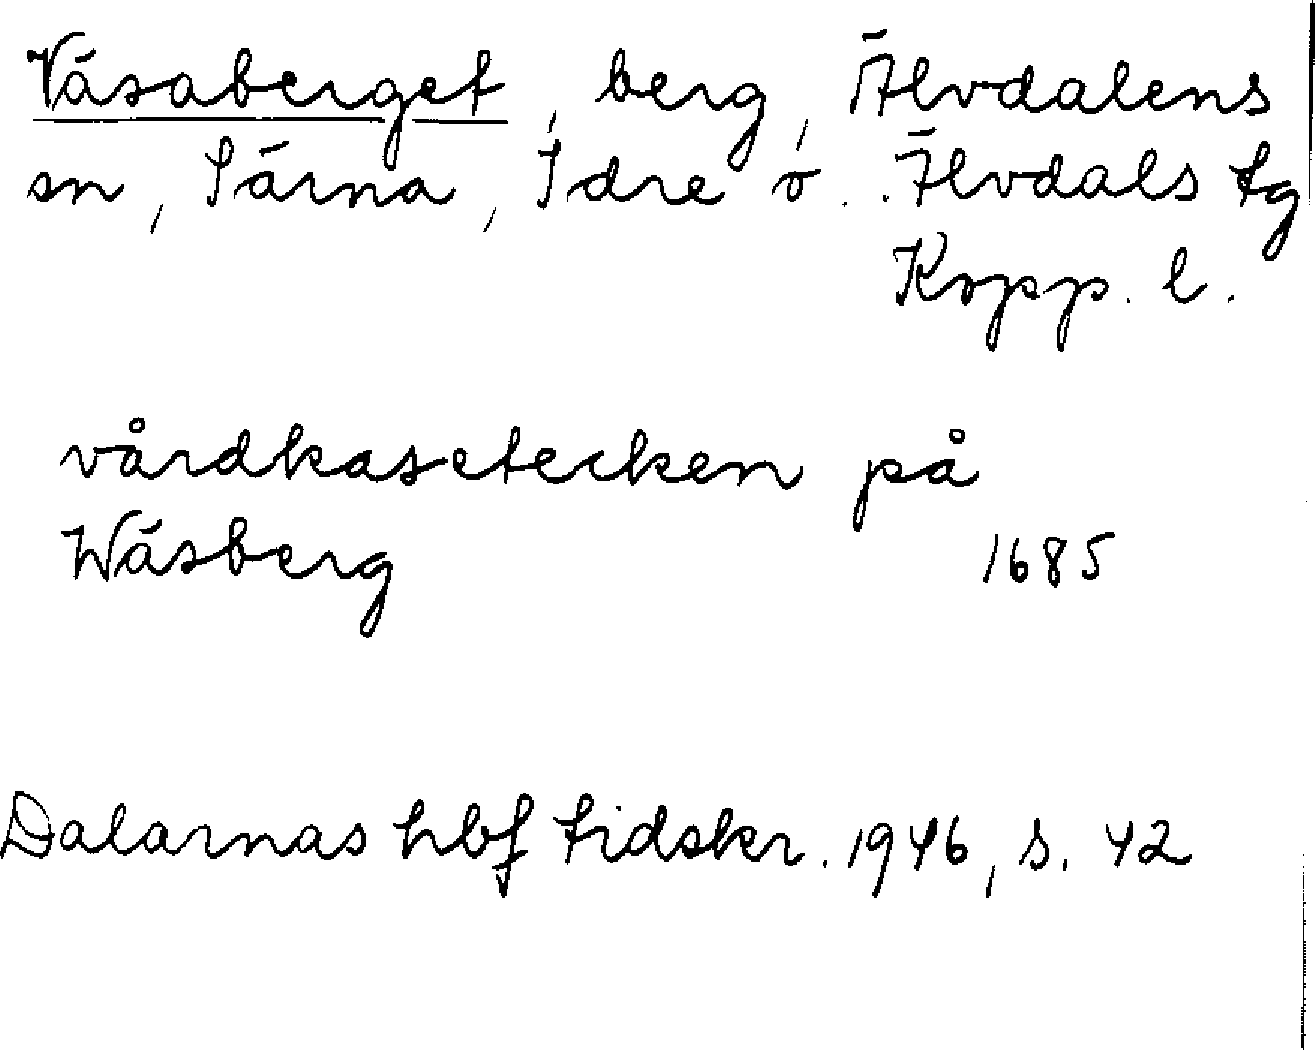 Väsaberget, berg, Älvdalens
sn, Särna, Idre o. Älvdals tg
Kopp. l.
vårdkasetecken på
Wäsberg 1685
Dalarnas hbf tidskr. 1946, s. 42